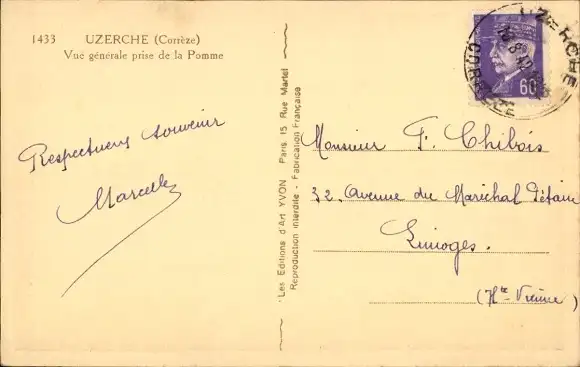 1433 UZERCHE (Corrèze)
Vue générale prise de la Pomme
Respectueux souvenir
Marcelle
Les Editions d'Art YVON Paris, 15 Rue Martel
Reproduction interdite - Fabrication Française
UZERCHE
CORRÈZE
60
Monsieur F. Chibois
32. Avenue du Maréchal Pétain
Limoges.
(Hte-Vienne)